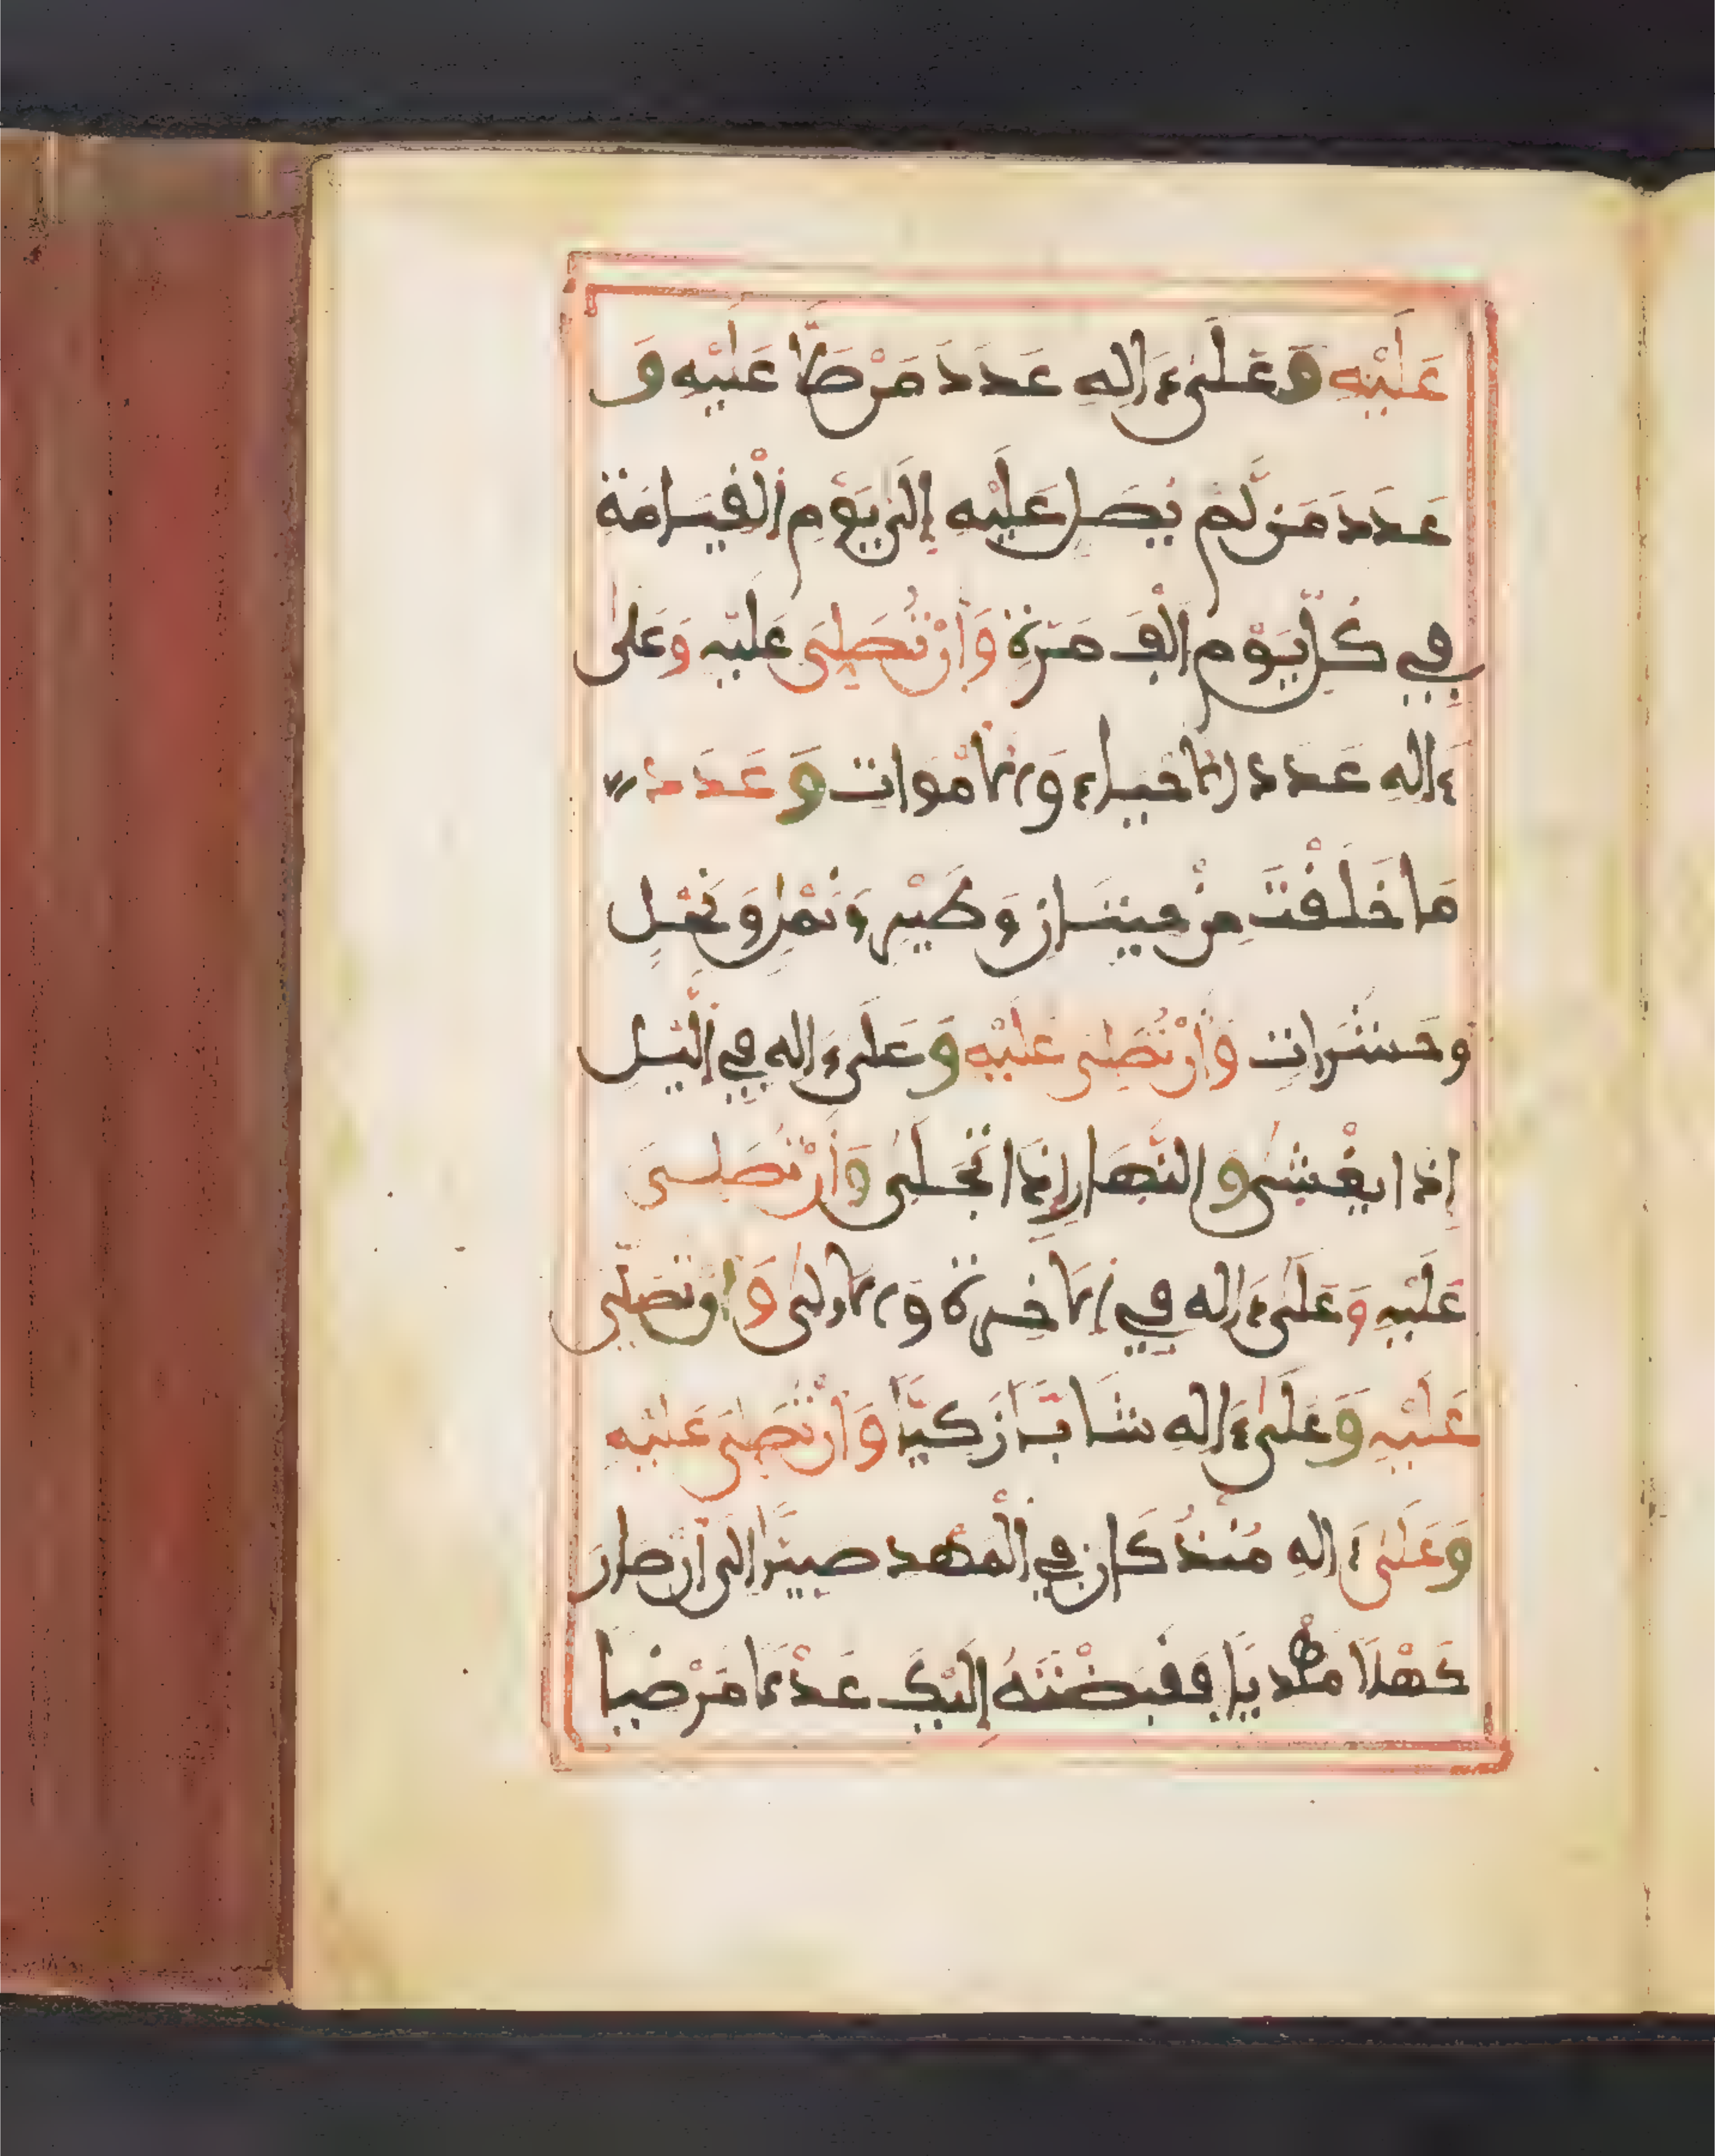 عَلَيْهِ وَعَلَىٰ ءَالِهِ عَدَدَ مَنْ صَلَّىٰ عَلَيْهِ وَ
عَدَدَ مَن لَّمْ يُصَلِ عَلَيْهِ إِلَىٰ يَوْمِ اِ۬لْقِيَـٰمَةِ
فِي كُلِّ يَوْمٍ اَلْفَ مَرَّةٍ وَأَنْ تُصَلِّيَ عَلَيْهِ وَعَلَىٰ
ءَالِهِ عَدَدَ اَ۬لَاحْيَاءِ وَالَامْوَاتِ وَعَدَدَ
مَا خَلَقْتَ مِنْ حِيتَانٍ وَطَيْرٍ وَنَمْلٍ وَنَحْلٍ
وَحَشَرَاتٍ وَأَنْ تُصَلِّيَ عَلَيْهِ وَعَلَىٰ ءَالِهِ فِي اِ۬لَّيْلِ
إِذَا يَغْشَىٰ وَالنَّهَارِ إِذَا تَجَلَّىٰ وَأَنْ تُصَلِّيَ
عَلَيْهِ وَعَلَىٰ ءَالِهِ فِي اِ۬لَاخِرَةِ وَالُاولَىٰ وَأَنْ تُصَلِّيَ
عَلَيْهِ وَعَلَىٰ ءَالِهِ شَابّاً زَكِيّاً وَأَنْ تُصَلِّيَ عَلَيْهِ
وَعَلَىٰ ءَالِهِ مُنْذُ كَانَ فِي اِ۬لْمَهْدِ صَبِيّاً إِلَىٰ أَنْ صَارَ
كَهْلًا مَهْدِيّاً فَقَبَضْتَهُ إِلَيْكَ عَدْلًا مَرْضِيّاً